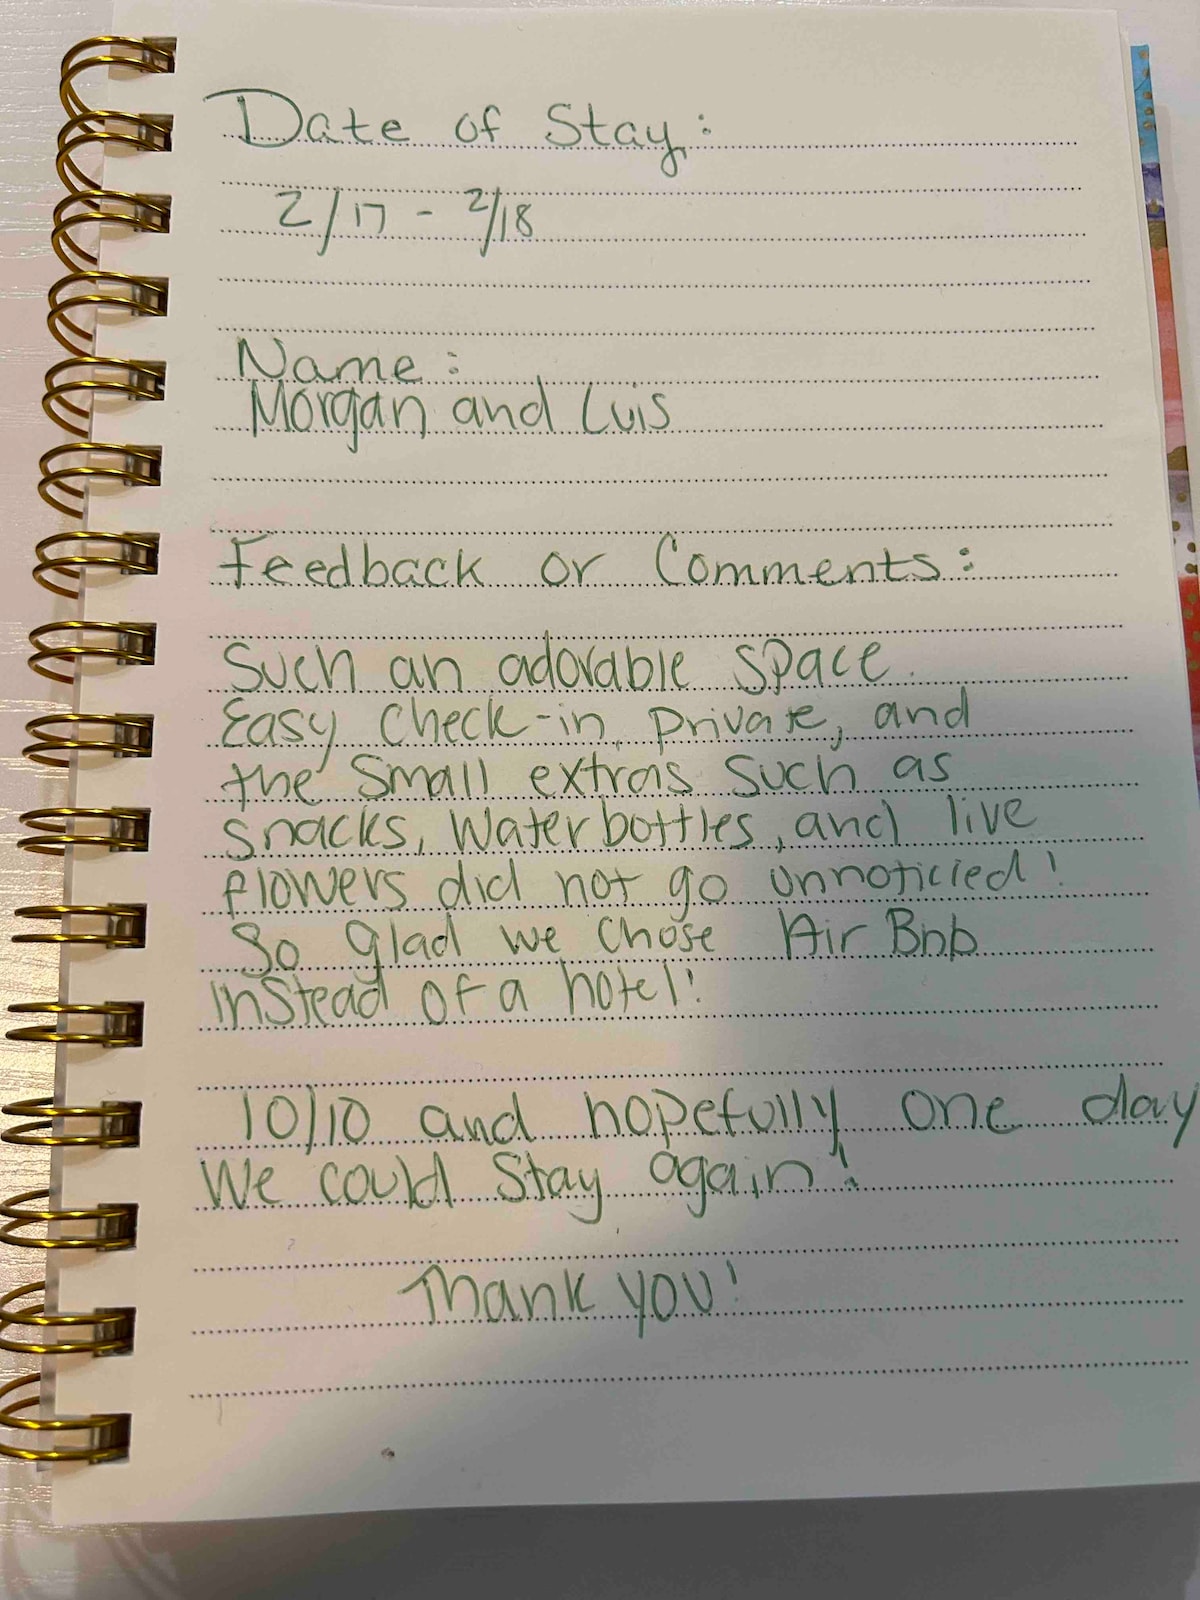 Date of Stay:
2/17 - 2/18
Name:
Morgan and Luis
Feedback or Comments:
Such an adorable space.
Easy check-in, private, and
the small extras such as
snacks, water bottles, and live
flowers did not go unnoticied!
So glad we chose Air Bnb
instead of a hotel!
10/10 and hopefully one day
we could stay again!
Thank you!